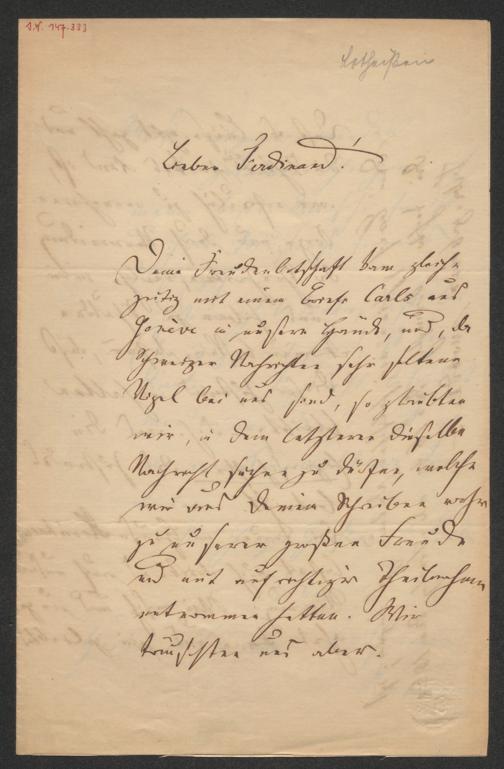 I.N. 147.333
Lotheißen
Lieber Ferdinand!
Deine Freudenbotschaft kam gleich-
zeitig mit einem Briefe Carls aus
Genève in unsere Hände, und, da
Schweizer Nachrichten sehr seltene
Vögel bei uns sind, so glaubten
wir, in dem letzteren dieselbe
Nachricht suchen zu dürfen, welche
wir aus Deinem Schreiben
zu unserer großen Freude
und mit aufrichtiger Theilnahme
entnommen hatten. Wir
täuschten uns aber.